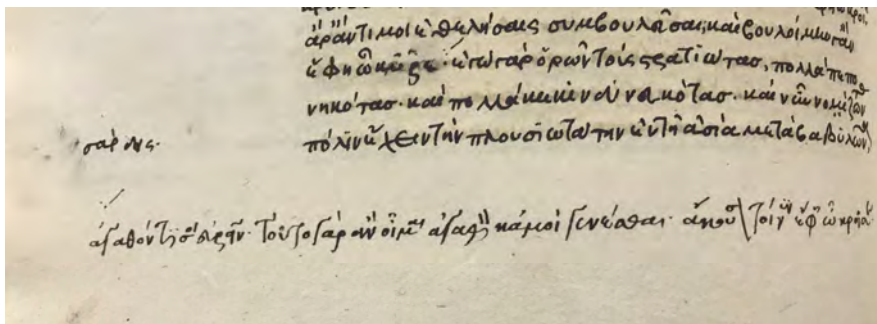 ἆρἄντί μοι ἐθελήσαις συμβουλεῦσαι; καὶ βουλοίμην γἄν
ἔφη ὦ κῦρε· ἐγὼ γὰρ ὁρῶν τοὺς στρατιώτας, πολλὰ πεπο
νηκότας· καὶ πολλὰ κεκινδυνευκότας· καὶ νῦν νομίζοντας
πόλιν ἔχειν τὴν πλουσιωτάτην ἐν τῇ ἀσίᾳ μετὰ βαβυλῶνα,
σάρδεις·
ἀγαθόν τί σοι εὑρεῖν· τοῦτο γὰρ ἂν οἶμαι ἀγαθὸν κἀμοὶ γενέσθαι· ἄκουσον τοίνυν ἔφη ὦ κροῖσε·